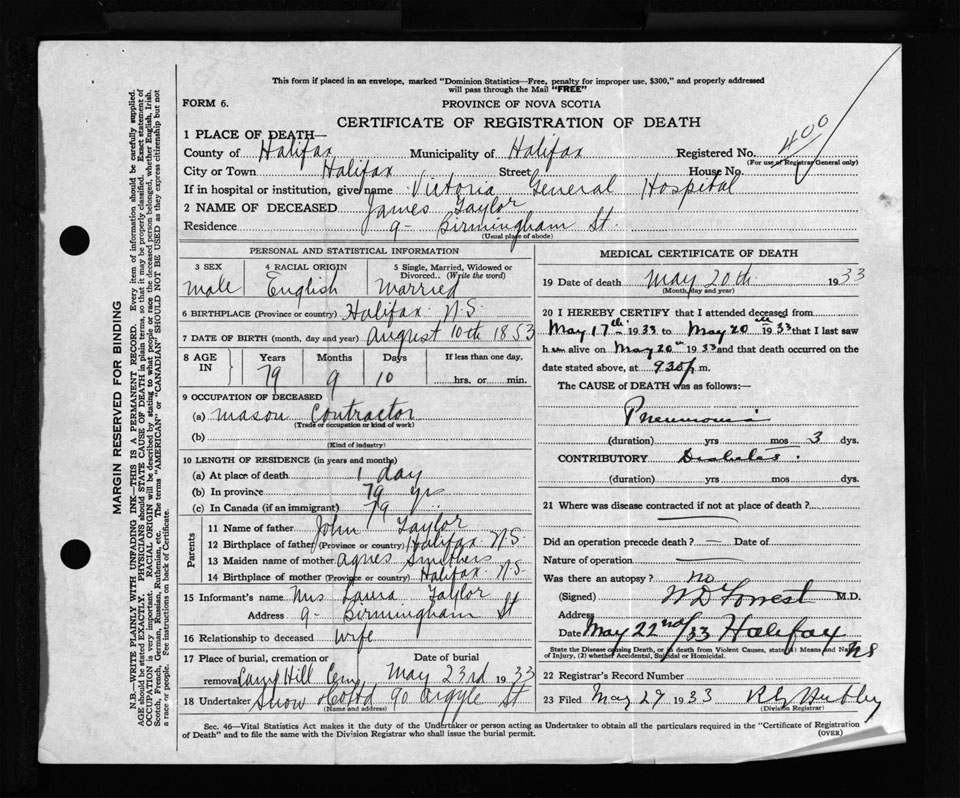 This form if placed in an envelope, marked "Dominion Statistics—Free, penalty for improper use, $300," and properly addressed
will pass through the Mail "FREE"
FORM 6.
PROVINCE OF NOVA SCOTIA
CERTIFICATE OF REGISTRATION OF DEATH
400
1 PLACE OF DEATH—
County of Halifax Municipality of Halifax Registered No.
(For use of Registrar General only)
City or Town Halifax Street House No.
If in hospital or institution, give name Victoria General Hospital
2 NAME OF DECEASED James Taylor
Residence 9- Birmingham St.
(Usual place of abode)
PERSONAL AND STATISTICAL INFORMATION
3 SEX 4 RACIAL ORIGIN 5 Single, Married, Widowed or
Divorced.. (Write the word)
male English Married
6 BIRTHPLACE (Province or country) Halifax N.S.
7 DATE OF BIRTH (month, day and year) August 10th 1853
8 AGE IN Years Months Days If less than one day,
79 9 10 hrs. or min.
9 OCCUPATION OF DECEASED
(a) mason Contractor
(Trade or occupation or kind of work)
(b)
(Kind of industry)
10 LENGTH OF RESIDENCE (in years and months)
(a) At place of death 1 day
(b) In province 79 yrs
(c) In Canada (if an immigrant) 79
Parents
11 Name of father John Taylor
12 Birthplace of father (Province or country) Halifax N.S.
13 Maiden name of mother Agnes Smithers
14 Birthplace of mother (Province or country) Halifax N.S.
15 Informant's name Mrs Laura Taylor
Address 9- Birmingham St
16 Relationship to deceased wife
17 Place of burial, cremation or Date of burial
removal Camp Hill Cem May 23rd 1933
18 Undertaker Snow 90 Argyle St
(Name and address)
MEDICAL CERTIFICATE OF DEATH
19 Date of death May 20th 1933
(Month, day and year)
20 I HEREBY CERTIFY that I attended deceased from
May 17th 1933 to May 20th 1933 that I last saw
him alive on May 20th 1933 and that death occurred on the
date stated above, at 930 p m.
The CAUSE of DEATH was as follows:—
Pneumonia
(duration) yrs mos 3 dys.
CONTRIBUTORY Diabetes.
(duration) yrs mos dys.
21 Where was disease contracted if not at place of death?
Did an operation precede death? — Date of
Nature of operation
Was there an autopsy? no
(Signed) W D Forrest M.D.
Address
Date May 22nd/33 Halifax NS
State the Disease causing Death, or in death from Violent Causes, state (1) Means and Nature
of Injury, (2) whether Accidental, Suicidal or Homicidal.
22 Registrar's Record Number
23 Filed May 29 1933
(Division Registrar)
Sec. 46—Vital Statistics Act makes it the duty of the Undertaker or person acting as Undertaker to obtain all the particulars required in the "Certificate of Registration
of Death" and to file the same with the Division Registrar who shall issue the burial permit.
(OVER)
MARGIN RESERVED FOR BINDING
N.B.—WRITE PLAINLY WITH UNFADING INK—THIS IS A PERMANENT RECORD. Every item of information should be carefully supplied.
AGE should be stated EXACTLY. PHYSICIANS should STATE CAUSE OF DEATH in plain terms, so that it may be properly classified. Exact statement of
OCCUPATION is very important. RACIAL ORIGIN will be described by stating to what people or race the deceased person belonged, whether English, Irish,
Scotch, French, German, Russian, Ruthenian, etc. The terms "AMERICAN" or "CANADIAN" SHOULD NOT BE USED as they express citizenship but not
a race or people. See instructions on back of Certificate.